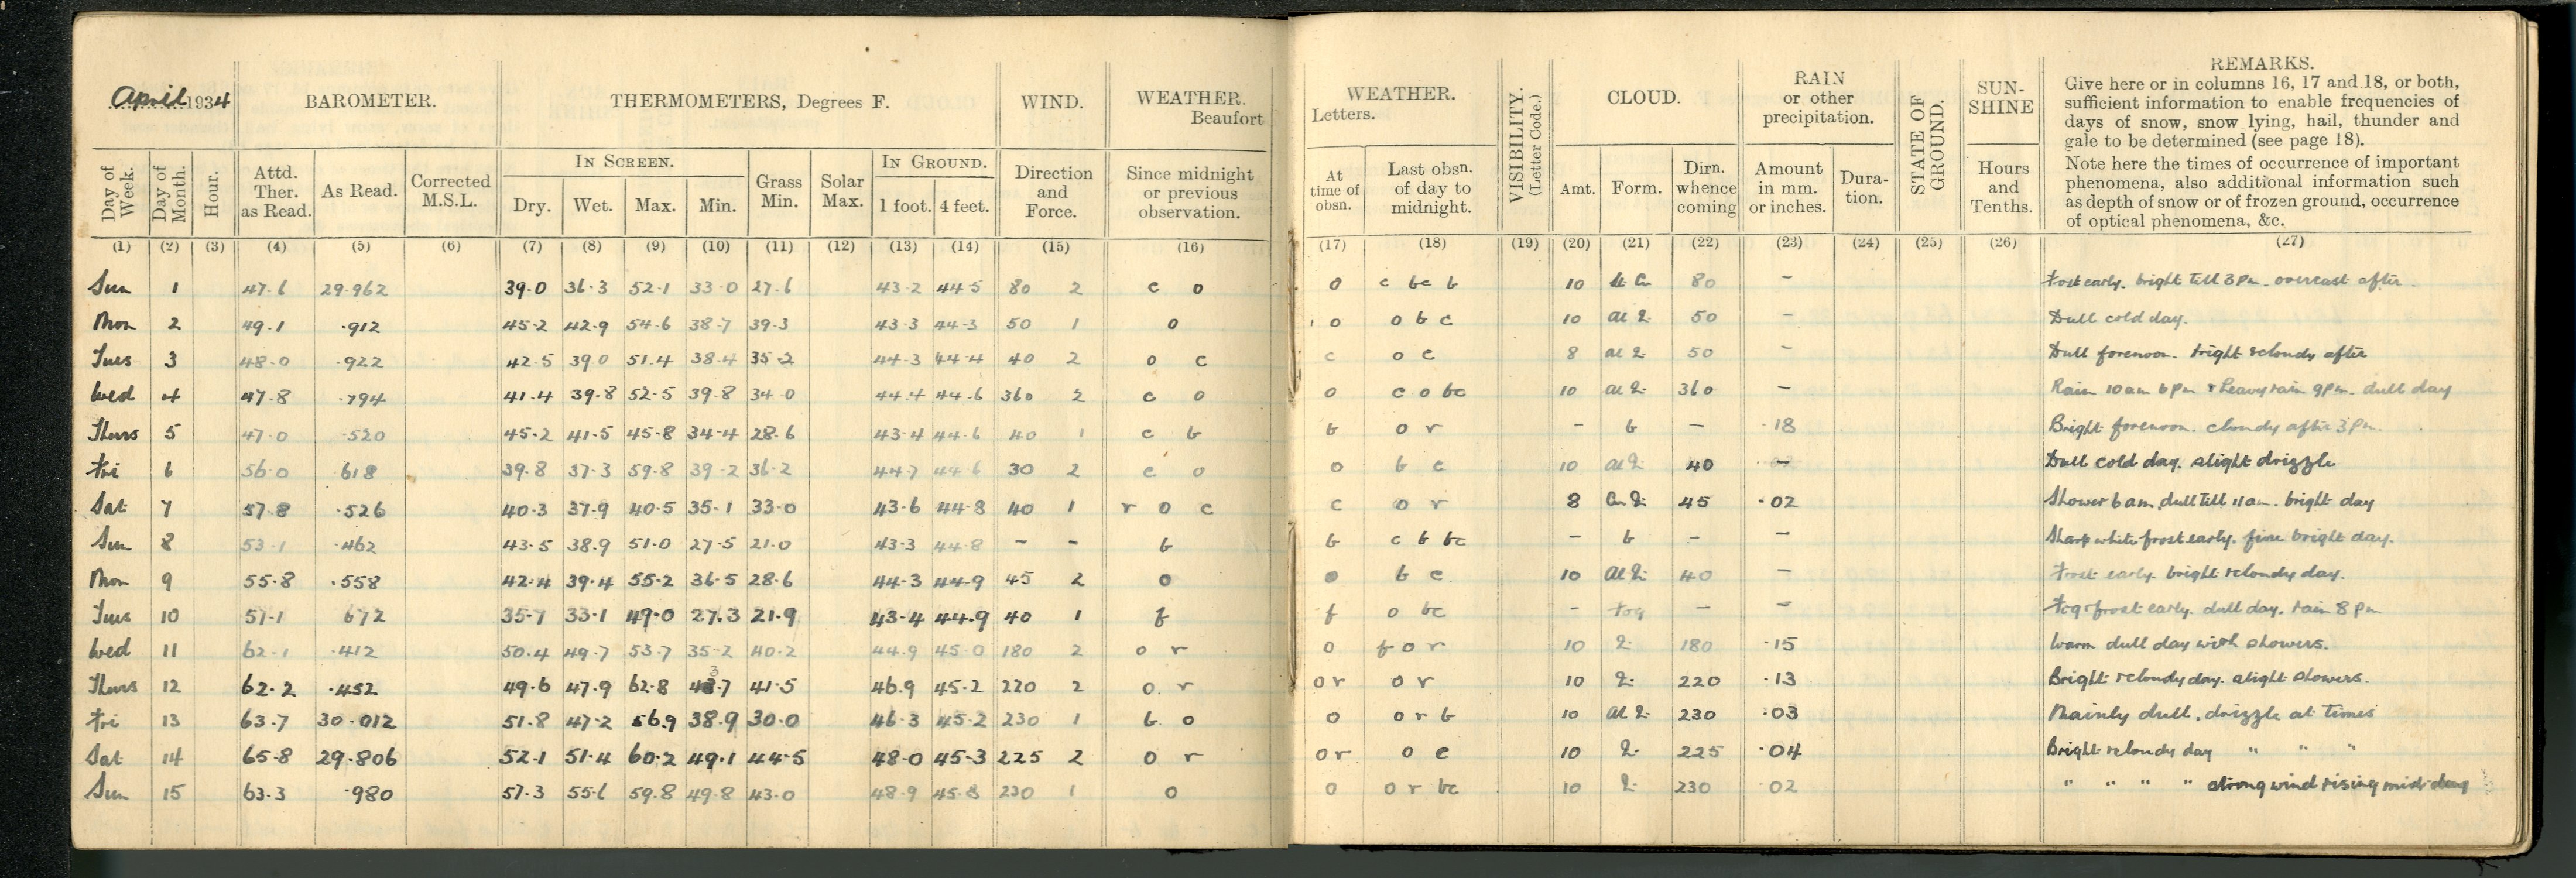 April 1934
BAROMETER.
THERMOMETERS, Degrees F.
WIND.
WEATHER.
Beaufort
Day of Week.
Day of Month.
Hour.
Attd. Ther. as Read.
As Read.
Corrected M.S.L.
IN SCREEN.
Dry.
Wet.
Max.
Min.
Grass Min.
Solar Max.
IN GROUND.
1 foot.
4 feet.
Direction and Force.
Since midnight or previous observation.
(1) (2) (3) (4) (5) (6) (7) (8) (9) (10) (11) (12) (13) (14) (15) (16)
Sun 1 47.6 29.962 39.0 36.3 52.1 33.0 27.6 43.2 44.5 80 2 c o
Mon 2 49.1 .912 45.2 42.9 54.6 38.7 39.3 43.3 44.3 50 1 o
Tues 3 48.0 .922 42.5 39.0 51.4 38.4 35.2 44.3 44.4 40 2 o c
Wed 4 47.8 .794 41.4 39.8 52.5 39.8 34.0 44.4 44.6 360 2 c o
Thurs 5 47.0 .520 45.2 41.5 45.8 34.4 28.6 43.4 44.6 40 1 c b
Fri 6 56.0 .618 39.8 37.3 59.8 39.2 36.2 44.7 44.6 30 2 c o
Sat 7 57.8 .526 40.3 37.9 40.5 35.1 33.0 43.6 44.8 40 1 r o c
Sun 8 53.1 .462 43.5 38.9 51.0 27.5 21.0 43.3 44.8 – – b
Mon 9 55.8 .558 42.4 39.4 55.2 36.5 28.6 44.3 44.9 45 2 o
Tues 10 57.1 672 35.7 33.1 49.0 27.3 21.9 43.4 44.9 40 1 f
Wed 11 62.1 .412 50.4 49.7 53.7 35.2 40.2 44.9 45.0 180 2 o r
Thurs 12 62.2 .452 49.6 47.9 62.8 43.7 41.5 46.9 45.2 220 2 o r
Fri 13 63.7 30.012 51.8 47.2 56.9 38.9 30.0 46.3 45.2 230 1 b o
Sat 14 65.8 29.806 52.1 51.4 60.2 49.1 44.5 48.0 45.3 225 2 o r
Sun 15 63.3 .980 57.3 55.6 59.8 49.8 43.0 48.9 45.8 230 1 o
WEATHER.
Letters.
VISIBILITY. (Letter Code.)
CLOUD.
RAIN or other precipitation.
STATE OF GROUND.
SUN-SHINE
REMARKS.
Give here or in columns 16, 17 and 18, or both,
sufficient information to enable frequencies of
days of snow, snow lying, hail, thunder and
gale to be determined (see page 18).
Note here the times of occurrence of important
phenomena, also additional information such
as depth of snow or of frozen ground, occurrence
of optical phenomena, &c.
At time of obsn.
Last obsn. of day to midnight.
Amt.
Form.
Dirn. whence coming
Amount in mm. or inches.
Dura-tion.
Hours and Tenths.
(17) (18) (19) (20) (21) (22) (23) (24) (25) (26) (27)
o c bc b 10 80 – Frost early. bright till 3 Pm. overcast after
o o b c 10 50 – Dull cold day.
c o c 8 50 – Dull forenoon. bright & cloudy after
o c o bc 10 360 – Rain 10 am 6 Pm & heavy rain 9 Pm. dull day
b o r – b – .18 Bright forenoon. cloudy after 3 Pm.
o b c 10 40 – Dull cold day. slight drizzle
c o r 8 45 .02 Shower 6 am, dull till 11 am. bright day
b c b bc – b – – Sharp white frost early. fine bright day.
o b c 10 40 – Frost early. bright & cloudy day.
f o bc – fog – – Fog & frost early. dull day. rain 8 pm
o f o r 10 180 .15 Warm dull day with showers.
or o r 10 220 .13 Bright & cloudy day. slight showers.
o o r b 10 230 .03 Mainly dull, drizzle at times
or o c 10 225 .04 Bright & cloudy day " " "
o o r bc 10 230 02 " " " " strong wind rising mid-day